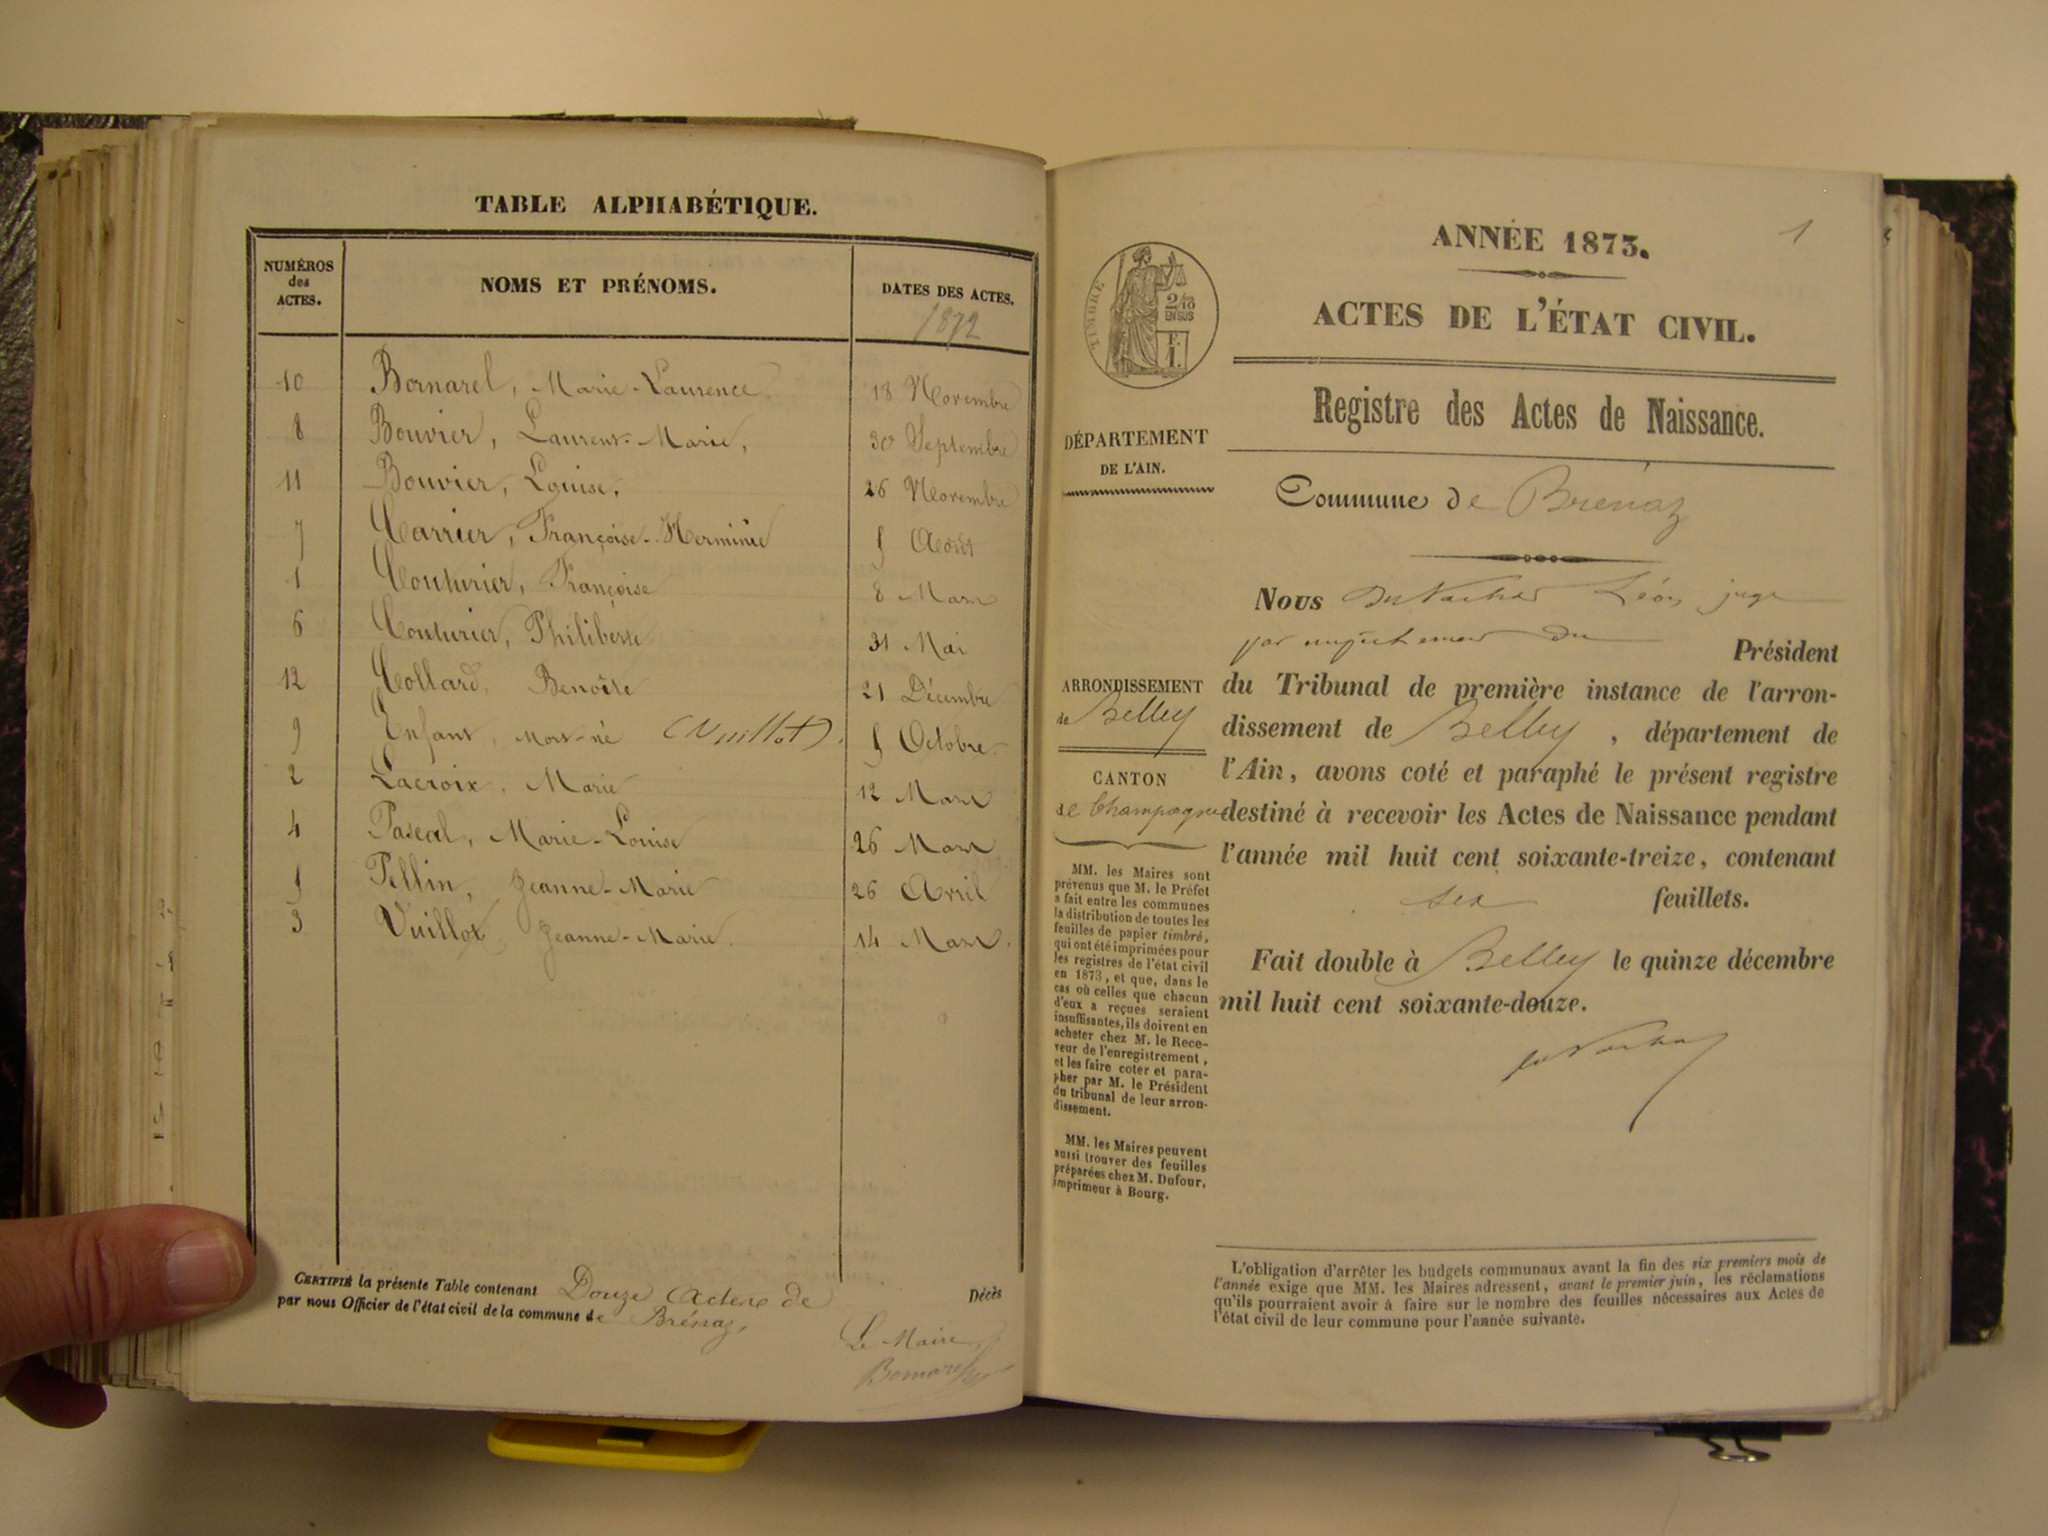 TABLE ALPHABÉTIQUE.
NUMÉROS des ACTES.
NOMS ET PRÉNOMS.
DATES DES ACTES.
1872
10 Bornarel, Marie-Laurence 18 Novembre
8 Bouvier, Laurent-Marie, 30 Septembre
11 Bouvier, Louise, 26 Novembre
7 Carrier, Françoise-Herminie 5 Août
1 Couturier, Françoise 8 Mars
6 Couturier, Philiberte 31 Mai
12 Collard, Benoîte 21 Décembre
9 Enfant, mort-né (Vuillot). 5 Octobre
2 Lacroix, Marie 12 Mars
4 Pascal, Marie-Louise 26 Mars
5 Pellin, Jeanne-Marie 26 Avril
3 Vuillot, Jeanne-Marie. 14 Mars.
CERTIFIÉ la présente Table contenant Douze Actes de Décès
par nous Officier de l'état civil de la commune de Brénaz,
Le Maire
Bornarel
1
ANNÉE 1873.
ACTES DE L'ÉTAT CIVIL.
TIMBRE
2/10
EN SUS
F.
1.
Registre des Actes de Naissance.
DÉPARTEMENT
DE L'AIN.
Commune de Brénaz
Nous Léon juge
par empêchement du Président
ARRONDISSEMENT
de Belley
CANTON
de Champagne
du Tribunal de première instance de l'arron-
dissement de Belley, département de
l'Ain, avons coté et paraphé le présent registre
destiné à recevoir les Actes de Naissance pendant
l'année mil huit cent soixante-treize, contenant
six feuillets.
Fait double à Belley le quinze décembre
mil huit cent soixante-douze.
MM. les Maires sont
prévenus que M. le Préfet
a fait entre les communes
la distribution de toutes les
feuilles de papier timbré,
qui ont été imprimées pour
les registres de l'état civil
en 1873, et que, dans le
cas où celles que chacun
d'eux a reçues seraient
insuffisantes, ils doivent en
acheter chez M. le Rece-
veur de l'enregistrement,
et les faire coter et para-
pher par M. le Président
du tribunal de leur arron-
dissement.
MM. les Maires peuvent
aussi trouver des feuilles
préparées chez M. Dufour,
imprimeur à Bourg.
L'obligation d'arrêter les budgets communaux avant la fin des six premiers mois de
l'année exige que MM. les Maires adressent, avant le premier juin, les réclamations
qu'ils pourraient avoir à faire sur le nombre des feuilles nécessaires aux Actes de
l'état civil de leur commune pour l'année suivante.